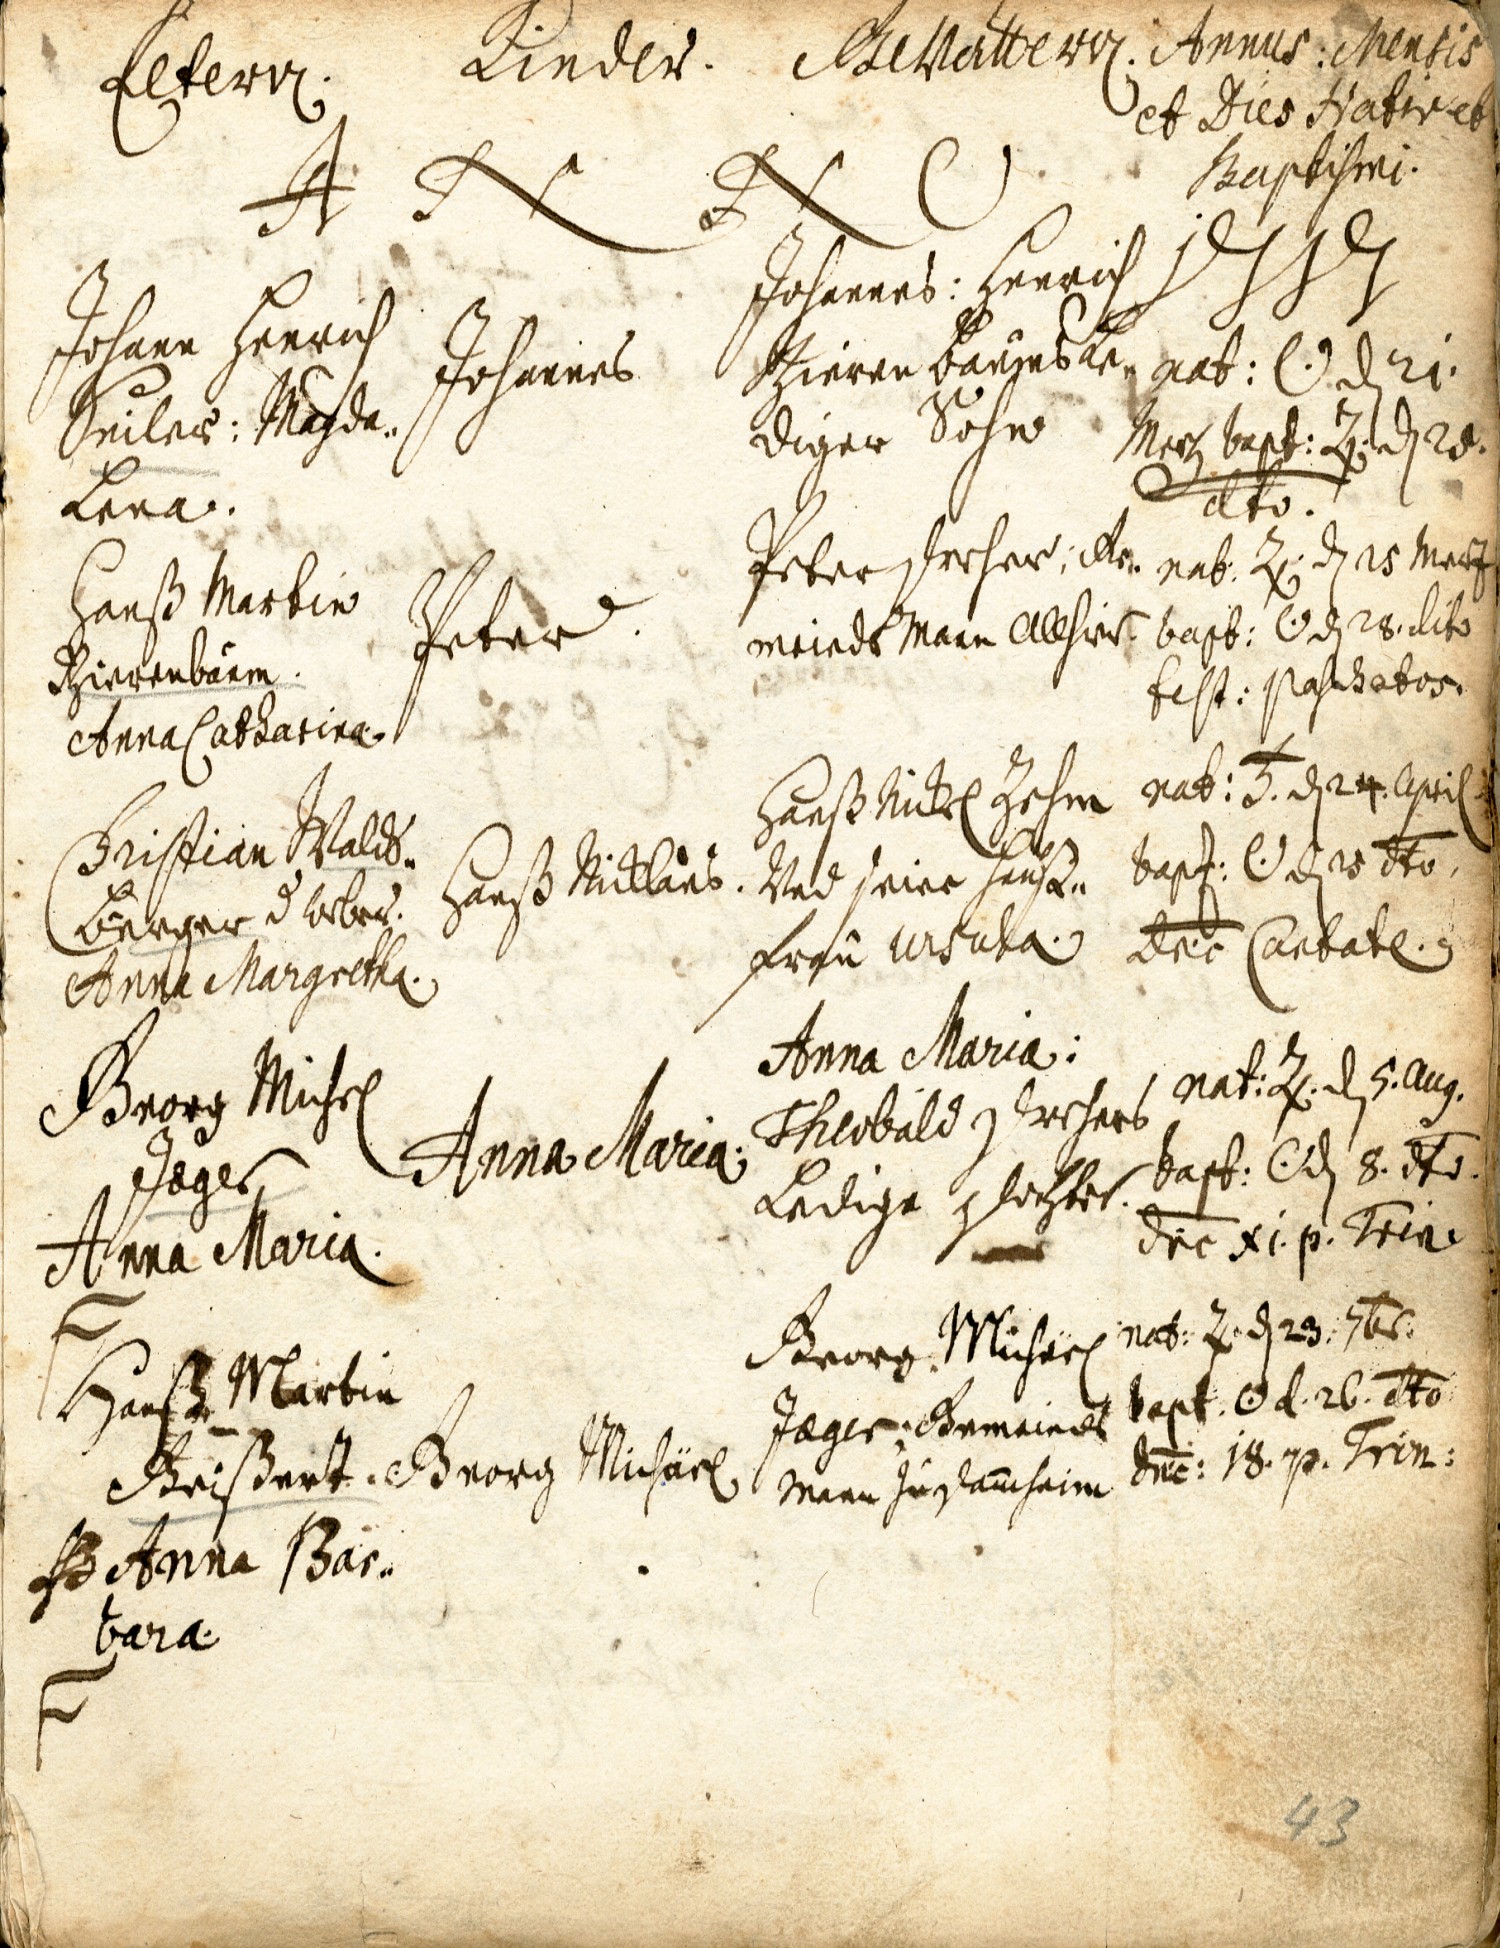 Eltern.
Kinder.
Gevattern.
Annus: Mensis
et Dies Nativ: et
Baptismi.
Johann Henrich
Seiler: Magda=
Lena.
Johannes
Johannes: Henrich
Bierenbaums Le=
diger Sohn
nat: ☉ d 21.
Mertz bapt: ♃ d 25.
dto.
Hanß Martin
Bierenbaum.
Anna Catharina
Peter.
Peter
meinds Mann Allhier
nat. ♃ d 25 Mertz
bapt: ☉ d 28. dito
fest: Paschatos.
Christian Walds=
berger
Anna Margretha.
Hanß Nicklaus.
Hanß Nickel Zehm
Und seine Hauß=
frau Ursula.
nat: ♄. d 24. April
bapt: ☉ d 25 dto.
Dnc Cantate.
Georg Michel
Jæger
Anna Maria.
Anna Maria.
Anna Maria:
Theobald
Ledige Tochter.
nat: ♃. d 5. Aug.
bapt: ☉ d 8. dto.
dnc XI. p. Trin.
Hanß Martin
Geißert.
Anna Bar=
bara.
Georg Michäel
Georg Michäel
Jæger: Gemeinds
Mann zu Dannheim
nat: ♃ d 23. 7br.
bapt. ☉ d. 26. dto
dnc: 18. p. Trin:
43